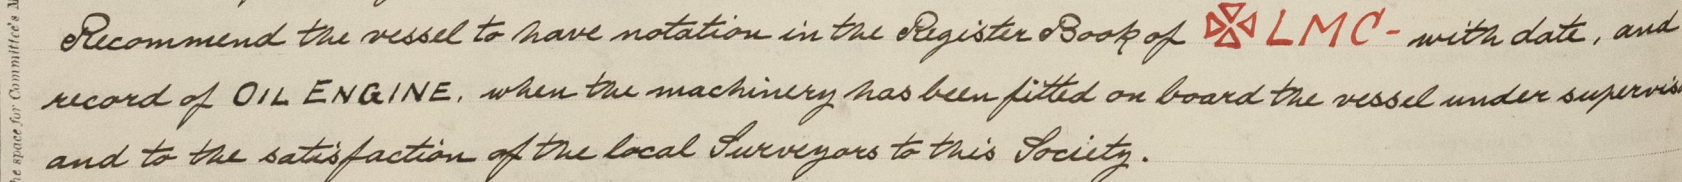 Recommend the vessel to have notation in the Register Book of ✠ LMC - with date, and
record of OIL ENGINE, when the machinery has been fitted on board the vessel under supervis
and to the satisfaction of the local Surveyors to this Society.
he space for Committee's M